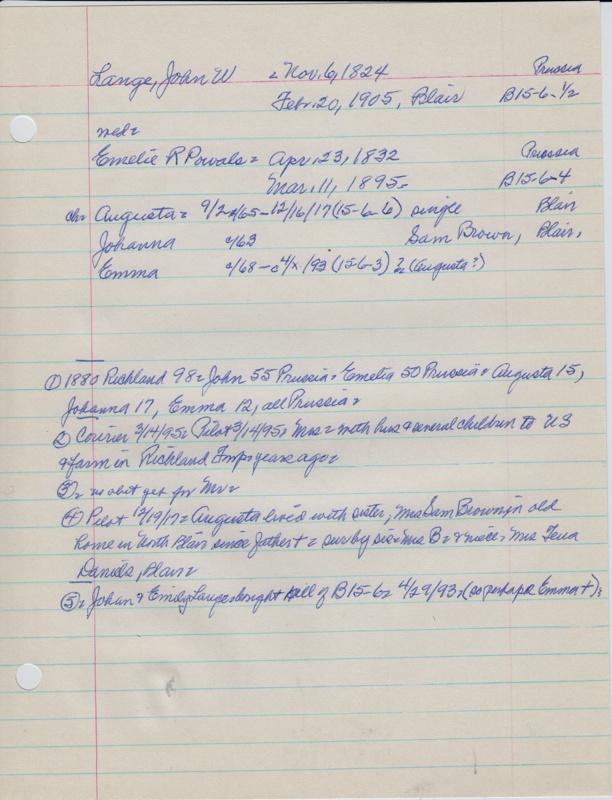 Lange, John W = Nov. 6, 1824 Prussia
Feb. 20, 1905, Blair B15-6-1/2
med=
Emelie R Powals = Apr. 23, 1832 Prussia
Mar. 11, 1895= B15-6-4
ch= Augusta = 9/24/65-12/16/17 (15-6-6) single Blair
Johanna c/63 Sam Brown, Blair,
Emma c/68 - c4/x/93 (15-6-3) (Augusta?)
① 1880 Richland 98= John 55 Prussia= Emelia 50 Prussia= Augusta 15,
Johanna 17, Emma 12, all Prussia=
② Courier 3/14/95= (Pilot 3/14/95) Mrs = with hus & several children to US
& farm in Richland Twp= years ago=
③= no obit yet for Mr=
④ Pilot 12/19/17= Augusta lived with sister, Mrs Sam Brown, in old
home in North Blair since father + = sur by sis= Mrs B= & niece= Mrs Tena
Daniels, Blair=
⑤= Johan & Emily Lange= bought all of B15-6= 4/29/93= (so perhaps Emma +)=